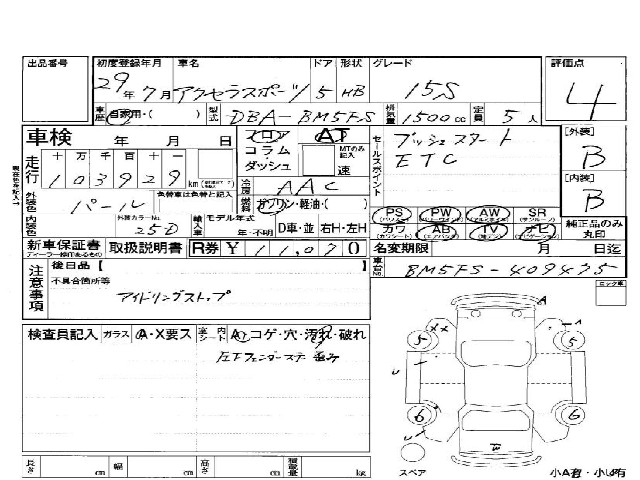 出品番号 初度登録年月 車名 ドア 形状 グレード 評価点
29年 7月 アクセラスポーツ 5 HB 15S 4
車歴 自家用・( ) 型式 DBA-BM5FS 排気量 1500cc 定員 5人
車検 年 月 日 フロア AT セールスポイント プッシュスタート [外装]
コラム MTのみ記入 ETC B
走行 十万 万 千 百 十 一 ダッシュ 速
103929 km 冷房 AAC [内装]
外装色 パール 色替車は色替と記入 燃料 ガソリン・軽油( ) PS PW AW SR B
内装色 外装カラーNo. 25D 輸入車 モデル年式 年・不明 D車・並 右H・左H カワ AB TV ナビ 純正品のみ丸印
新車保証書 取扱説明書 R券 ¥11,070 名変期限 月 日迄
注意事項 後日品【 】 車台No. BM5FS-409435
不具合箇所等
アイドリングストップ
検査員記入 ガラス A・X要ス 室内シート A・コゲ・穴・汚れ・破れ
左Fフェンダーステー歪み
A
XX A
5 5
U
6 6
U
スペア 小A有・小U有
長さ cm 幅 cm 高さ cm 積載量 kg